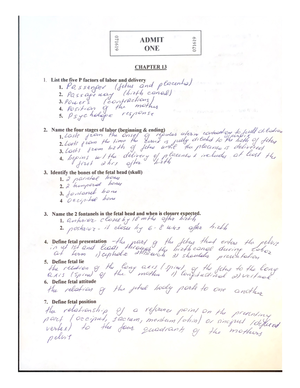 ADMIT
ONE
CHAPTER 13
1. List the five P factors of labor and delivery
1. Passenger (fetus and placenta)
2. Passageway (birth canal)
3. Powers (contractions)
4. Position of the mother
5. Psychologic response
2. Name the four stages of labor (beginning & ending)
1. Lasts from the onset of regular uterine contractions to full dilation
2. Lasts from the time the cervix is fully dilated to the birth of fetus
3. Lasts from birth of fetus until the placenta is delivered
4. begins with the delivery of placenta includes at least the
first after birth
3. Identify the bones of the fetal head (skull)
1. 2 parietal bone
2. 2 temporal bone
3. frontal bone
4. occipital bone
3. Name the 2 fontanels in the fetal head and when is closure expected.
1. anterior: closes by 18 months after birth
2. posterior: it closes by 6-8 wks after birth
4. Define fetal presentation - the part of the fetus that enters the pelvic
inlet and leads through the birth canal during labor
at term cephalic shoulder presentation
5. Define fetal lie
the relation of the long axis (spine) of the fetus to the long
axis (spine) of the mother longitudinal
6. Define fetal attitude
the relation of the fetal body parts to one another
7. Define fetal position
the relationship of a reference point on the presenting
part (occiput, sacrum, mentum (chin) or sinciput (deflexed
vertex) to the four quadrants of the mothers
pelvis